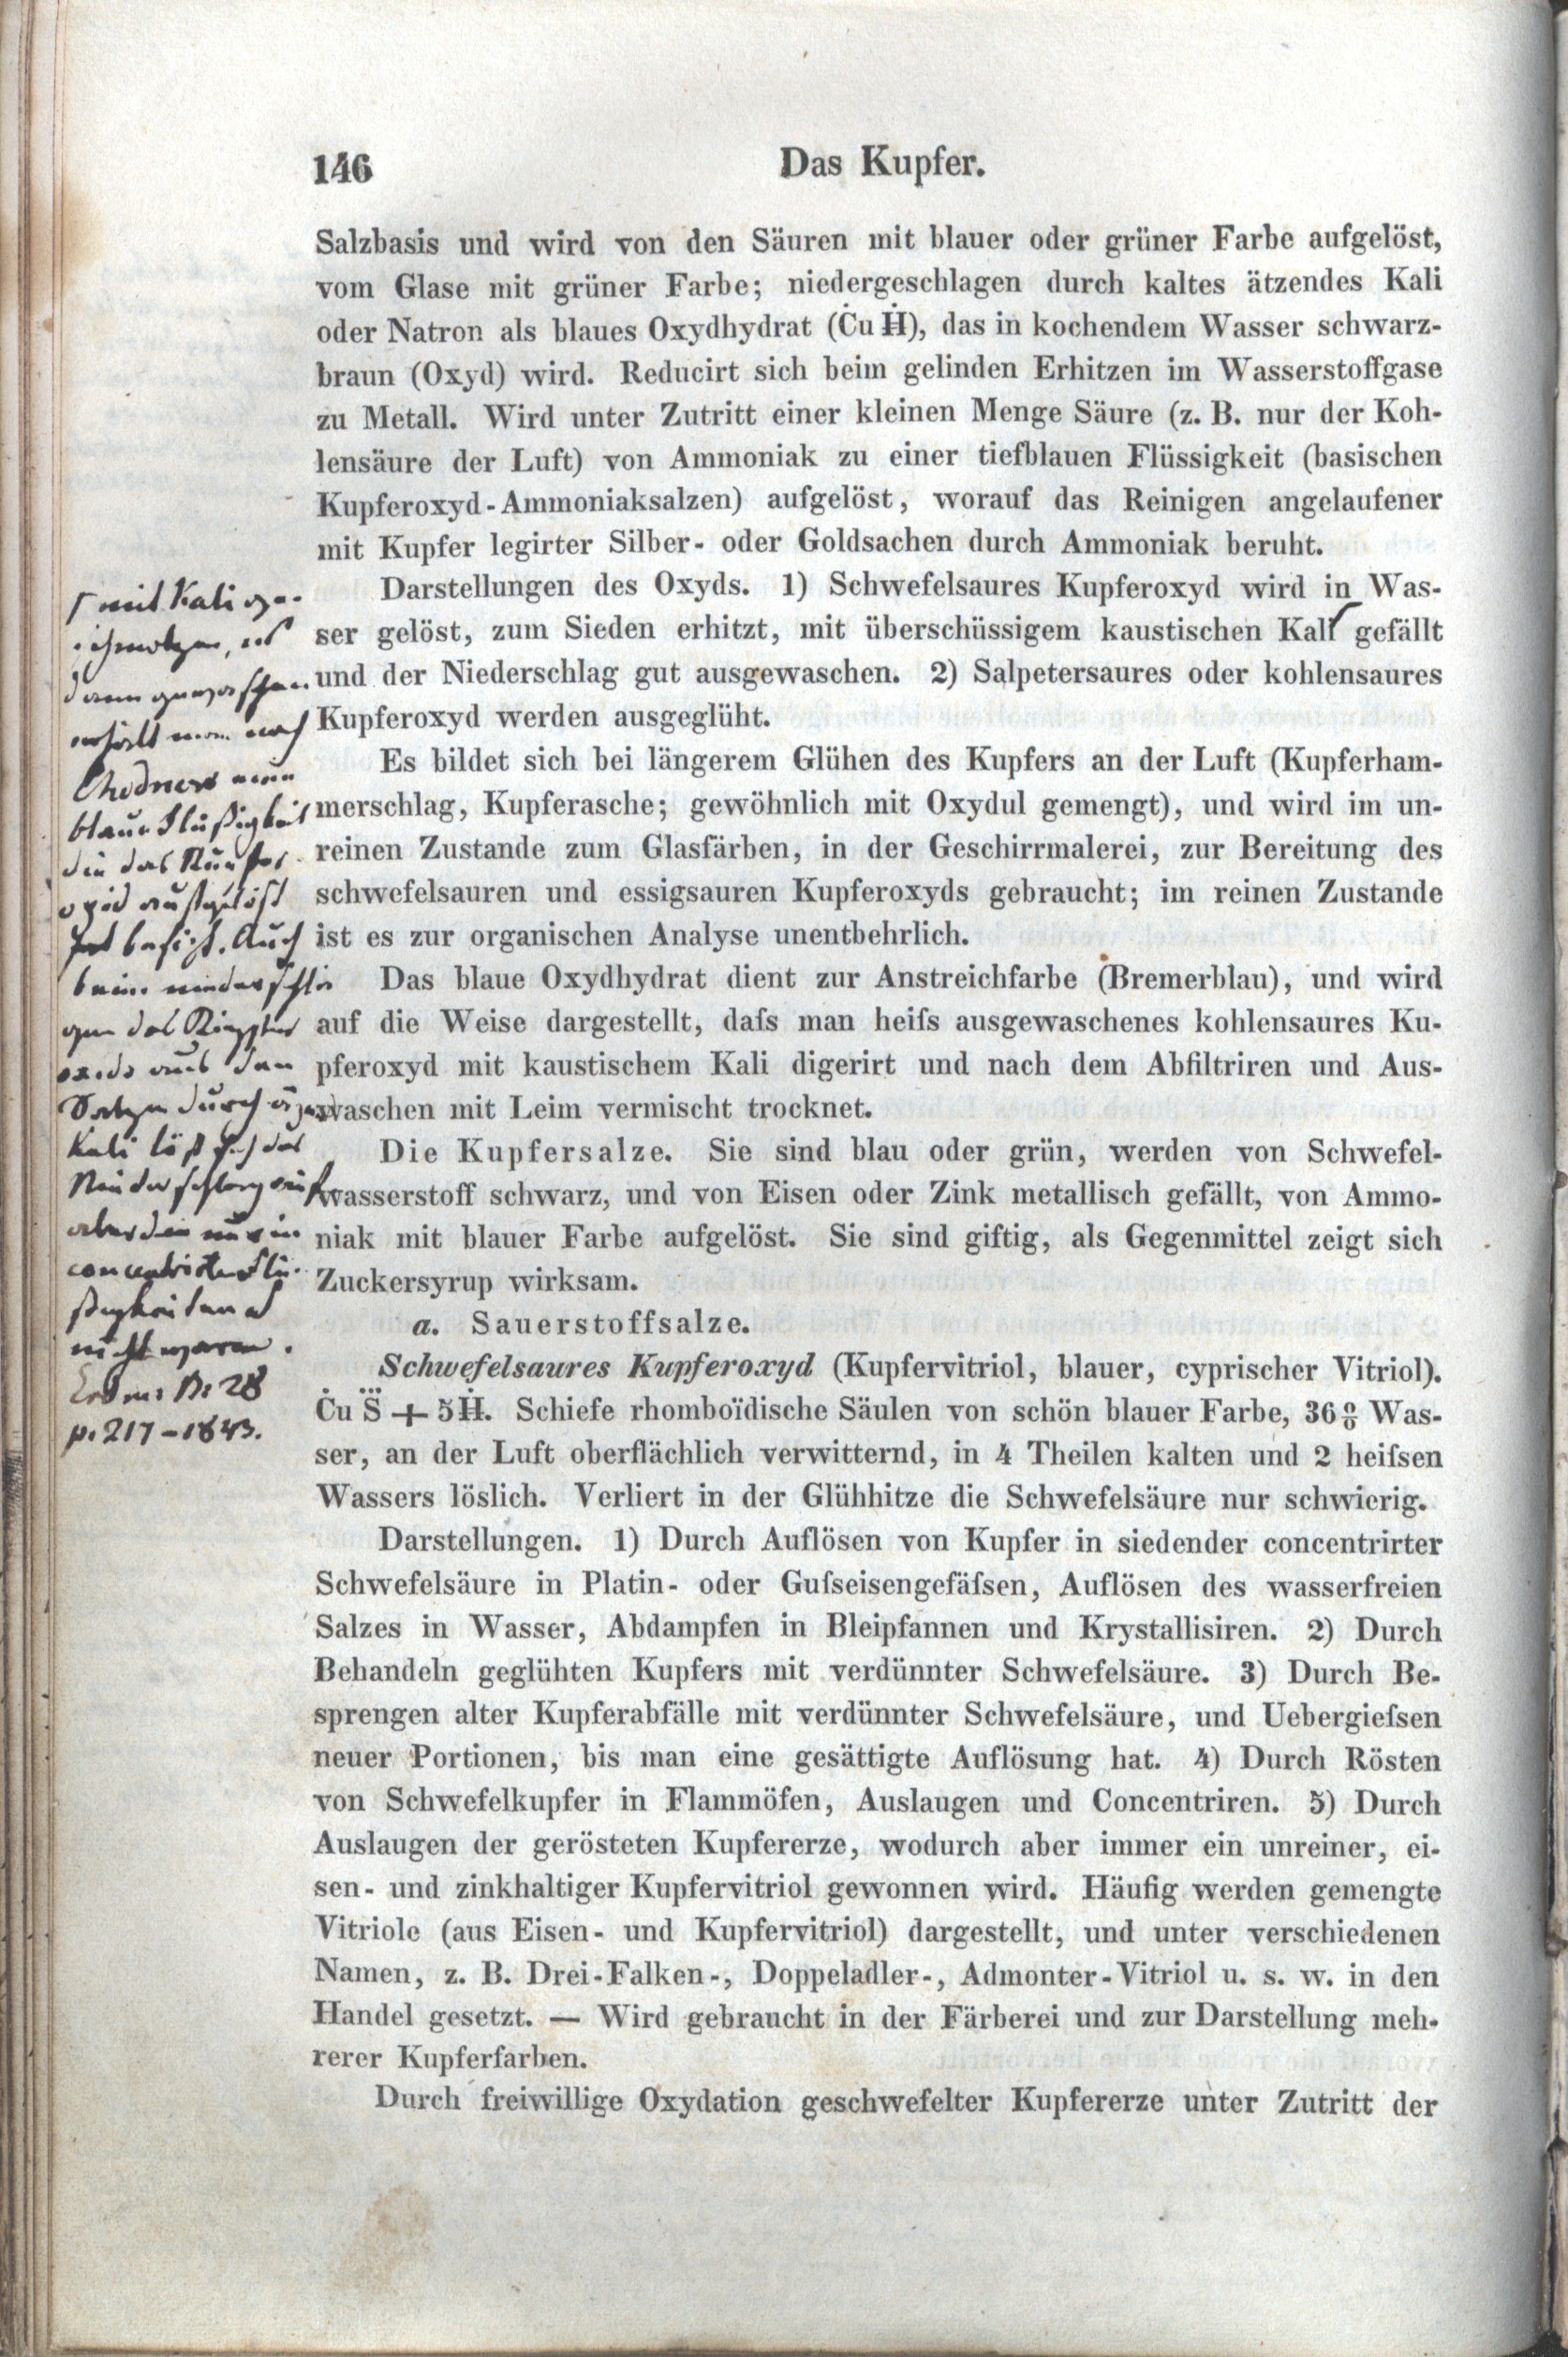 146
Das Kupfer.
Salzbasis und wird von den Säuren mit blauer oder grüner Farbe aufgelöst,
vom Glase mit grüner Farbe; niedergeschlagen durch kaltes ätzendes Kali
oder Natron als blaues Oxydhydrat (Ċu Ḣ), das in kochendem Wasser schwarz-
braun (Oxyd) wird. Reducirt sich beim gelinden Erhitzen im Wasserstoffgase
zu Metall. Wird unter Zutritt einer kleinen Menge Säure (z. B. nur der Koh-
lensäure der Luft) von Ammoniak zu einer tiefblauen Flüssigkeit (basischen
Kupferoxyd-Ammoniaksalzen) aufgelöst, worauf das Reinigen angelaufener
mit Kupfer legirter Silber- oder Goldsachen durch Ammoniak beruht.
Darstellungen des Oxyds. 1) Schwefelsaures Kupferoxyd wird in Was-
ser gelöst, zum Sieden erhitzt, mit überschüssigem kaustischen Kali gefällt
und der Niederschlag gut ausgewaschen. 2) Salpetersaures oder kohlensaures
Kupferoxyd werden ausgeglüht.
Es bildet sich bei längerem Glühen des Kupfers an der Luft (Kupferham-
merschlag, Kupferasche; gewöhnlich mit Oxydul gemengt), und wird im un-
reinen Zustande zum Glasfärben, in der Geschirrmalerei, zur Bereitung des
schwefelsauren und essigsauren Kupferoxyds gebraucht; im reinen Zustande
ist es zur organischen Analyse unentbehrlich.
Das blaue Oxydhydrat dient zur Anstreichfarbe (Bremerblau), und wird
auf die Weise dargestellt, daſs man heiſs ausgewaschenes kohlensaures Ku-
pferoxyd mit kaustischem Kali digerirt und nach dem Abfiltriren und Aus-
waschen mit Leim vermischt trocknet.
Die Kupfersalze. Sie sind blau oder grün, werden von Schwefel-
wasserstoff schwarz, und von Eisen oder Zink metallisch gefällt, von Ammo-
niak mit blauer Farbe aufgelöst. Sie sind giftig, als Gegenmittel zeigt sich
Zuckersyrup wirksam.
a. Sauerstoffsalze.
Schwefelsaures Kupferoxyd (Kupfervitriol, blauer, cyprischer Vitriol).
Ċu S⃛ + 5Ḣ. Schiefe rhomboïdische Säulen von schön blauer Farbe, 36% Was-
ser, an der Luft oberflächlich verwitternd, in 4 Theilen kalten und 2 heiſsen
Wassers löslich. Verliert in der Glühhitze die Schwefelsäure nur schwierig.
Darstellungen. 1) Durch Auflösen von Kupfer in siedender concentrirter
Schwefelsäure in Platin- oder Guſseisengefäſsen, Auflösen des wasserfreien
Salzes in Wasser, Abdampfen in Bleipfannen und Krystallisiren. 2) Durch
Behandeln geglühten Kupfers mit verdünnter Schwefelsäure. 3) Durch Be-
sprengen alter Kupferabfälle mit verdünnter Schwefelsäure, und Uebergieſsen
neuer Portionen, bis man eine gesättigte Auflösung hat. 4) Durch Rösten
von Schwefelkupfer in Flammöfen, Auslaugen und Concentriren. 5) Durch
Auslaugen der gerösteten Kupfererze, wodurch aber immer ein unreiner, ei-
sen- und zinkhaltiger Kupfervitriol gewonnen wird. Häufig werden gemengte
Vitriole (aus Eisen- und Kupfervitriol) dargestellt, und unter verschiedenen
Namen, z. B. Drei-Falken-, Doppeladler-, Admonter-Vitriol u. s. w. in den
Handel gesetzt. — Wird gebraucht in der Färberei und zur Darstellung meh-
rerer Kupferfarben.
Durch freiwillige Oxydation geschwefelter Kupfererze unter Zutritt der
mit Kali ge-
schmolzen,
erhält man nach
Chodnew eine
blaue Flüßigkeit
die das Kupfer
oxid aufgelöst
Auch
beim niederschla
gen des Kupfer
oxids aus den
Salzen durch
Kali löst sich der
Niederschlag auf
aber die nur in
concentrirten Flü-
ßigkeiten
nicht
p. 217 - 1843.